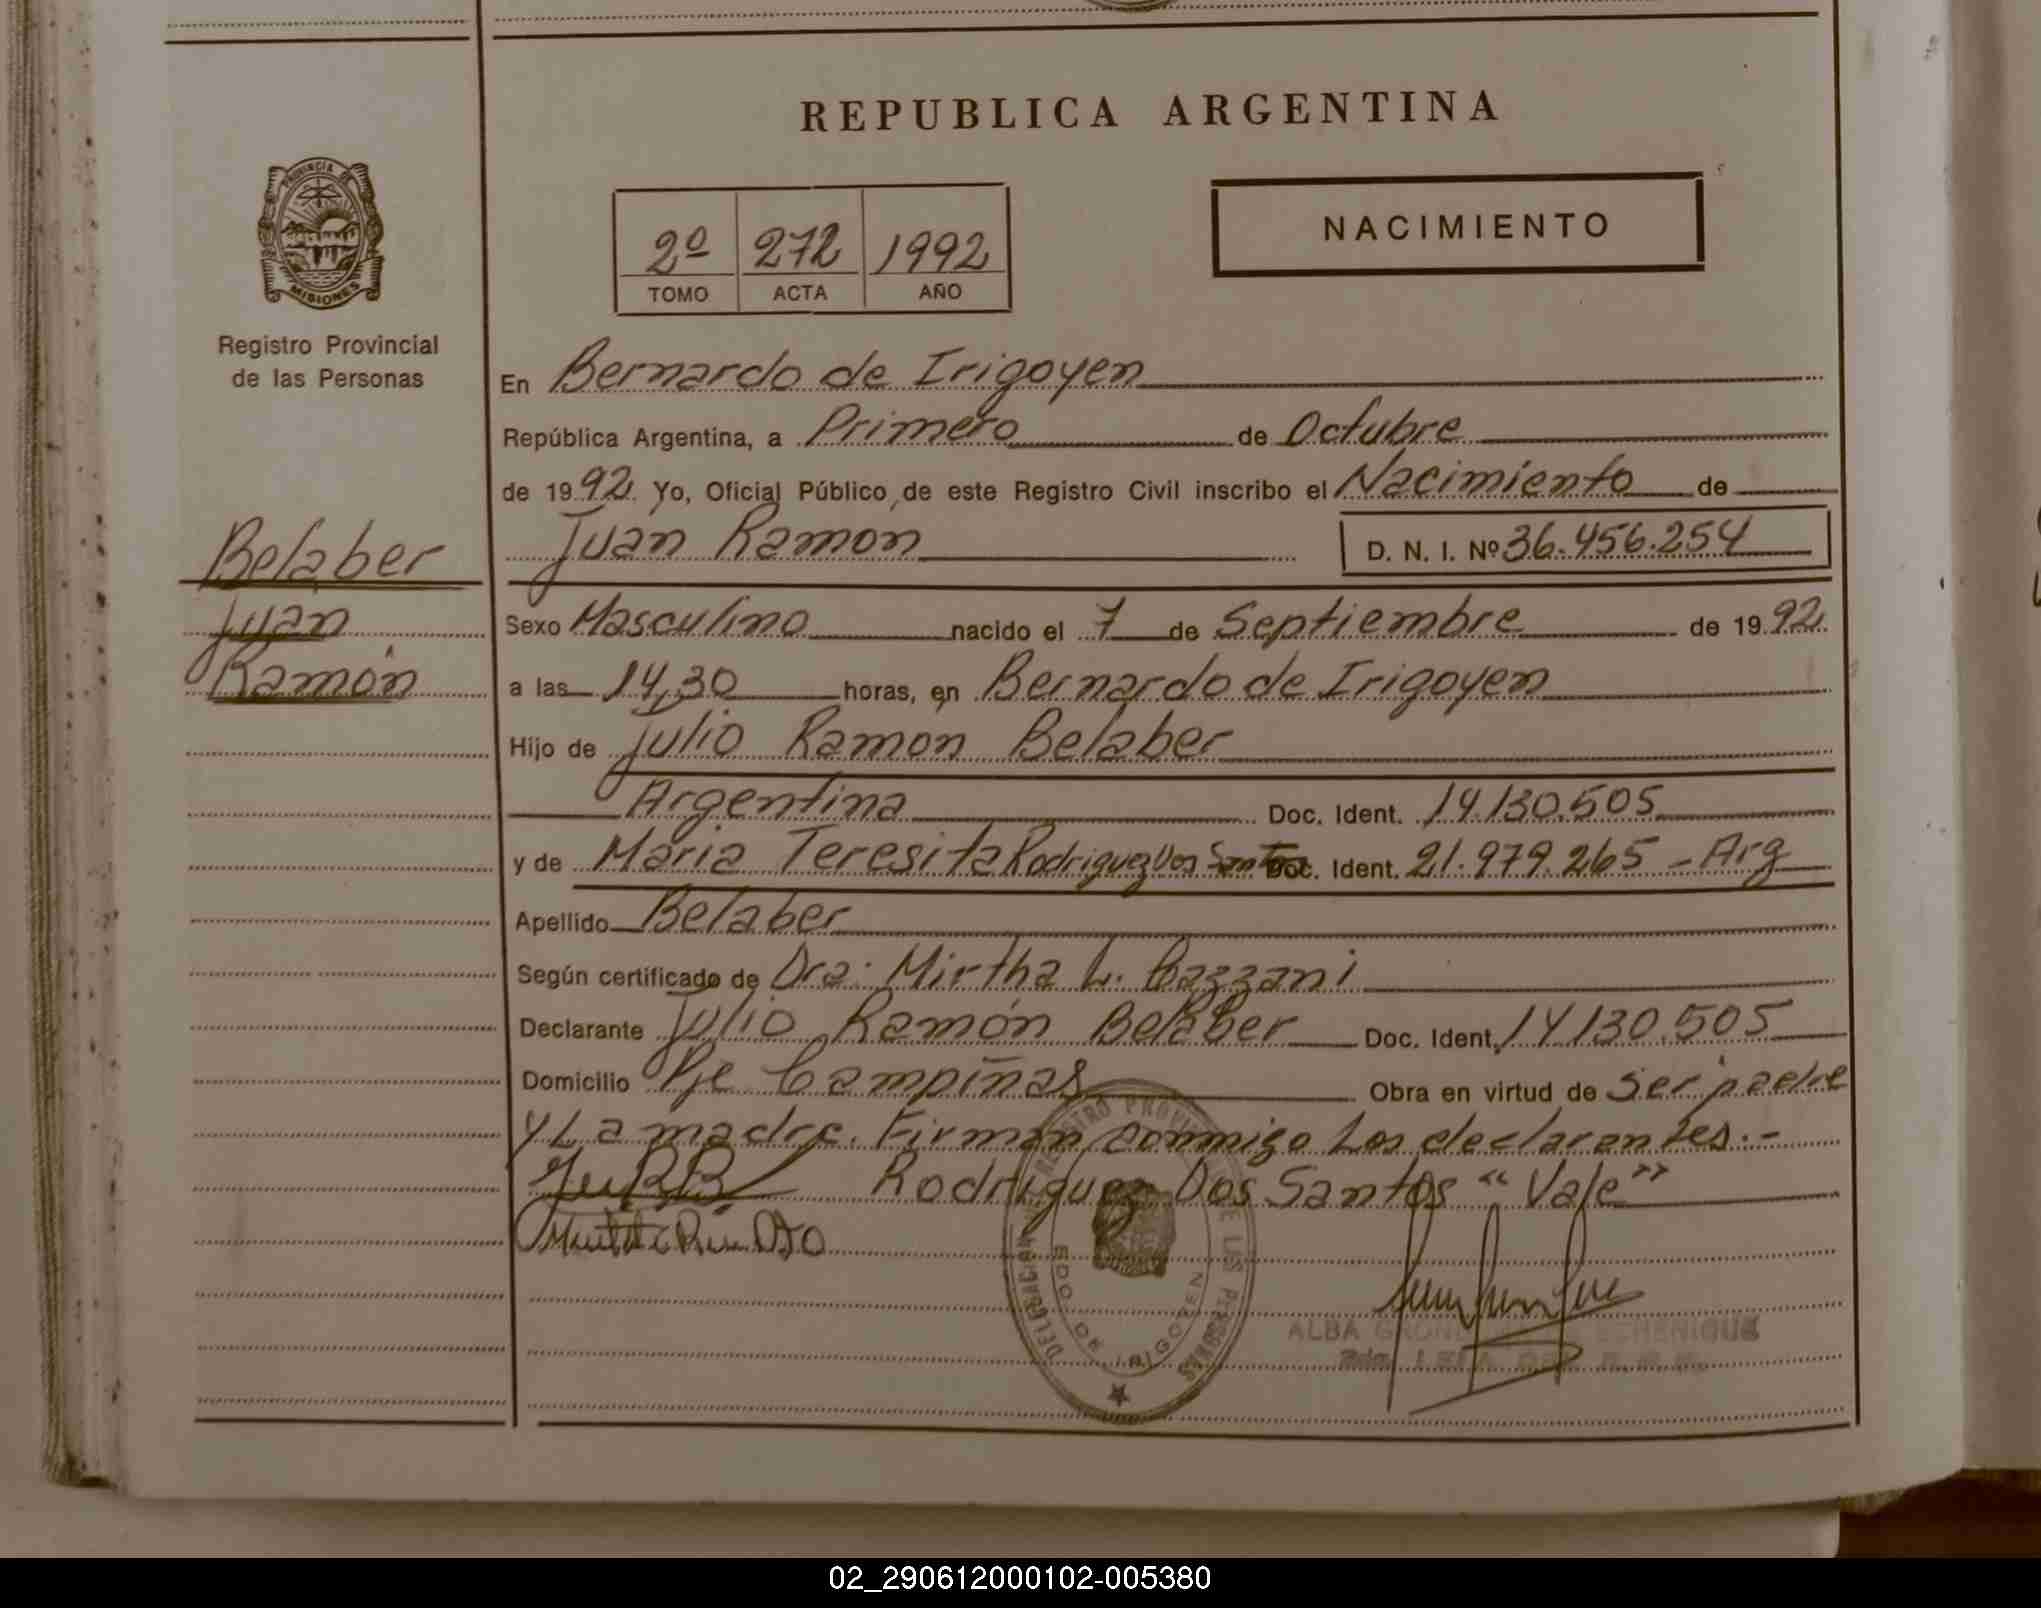 REPUBLICA ARGENTINA
PROVINCIA DE
MISIONES
Registro Provincial
de las Personas
2º 272 1992
TOMO ACTA AÑO
NACIMIENTO
En Bernardo de Irigoyen
República Argentina, a Primero de Octubre
de 1992. Yo, Oficial Público de este Registro Civil inscribo el Nacimiento de
Juan Ramon D. N. I. Nº 36.456.254
Belaber
Juan
Ramón
Sexo Masculino nacido el 7 de Septiembre de 1992.
a las 14,30 horas, en Bernardo de Irigoyen
Hijo de Julio Ramon Belaber
Argentina Doc. Ident. 14.130.505
y de Maria Teresita Rodriguez Dos Santos Doc. Ident. 21.979.265 - Arg
Apellido Belaber
Según certificado de Dra: Mirtha L. Bazzani
Declarante Julio Ramón Belaber Doc. Ident. 14.130.505
Domicilio Pje Campiñas Obra en virtud de ser padre
y La madre. Firman conmigo Los declarantes.-
Rodriguez Dos Santos "Vale"
REGISTRO PROVINCIAL DE LAS PERSONAS
DELEGACION
BDO. DE IRIGOYEN
ALBA ECHENIGUE
02_290612000102-005380